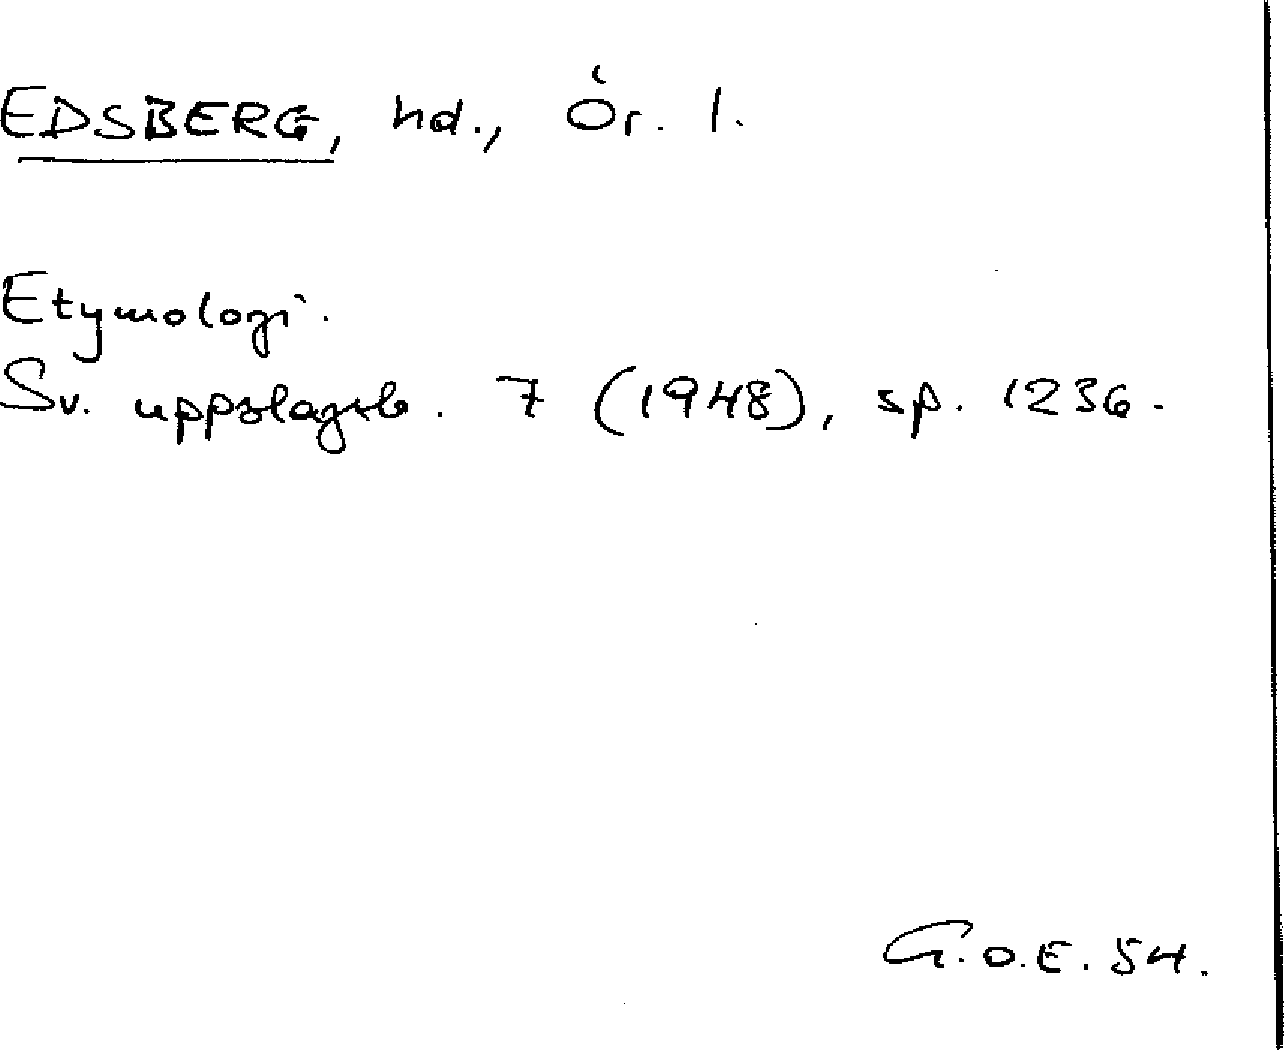 EDSBERG, hd., Ör. l.
Etymologi.
Sv. uppslagsb. 7 (1948), sp. 1236.
G.O.E. 54.